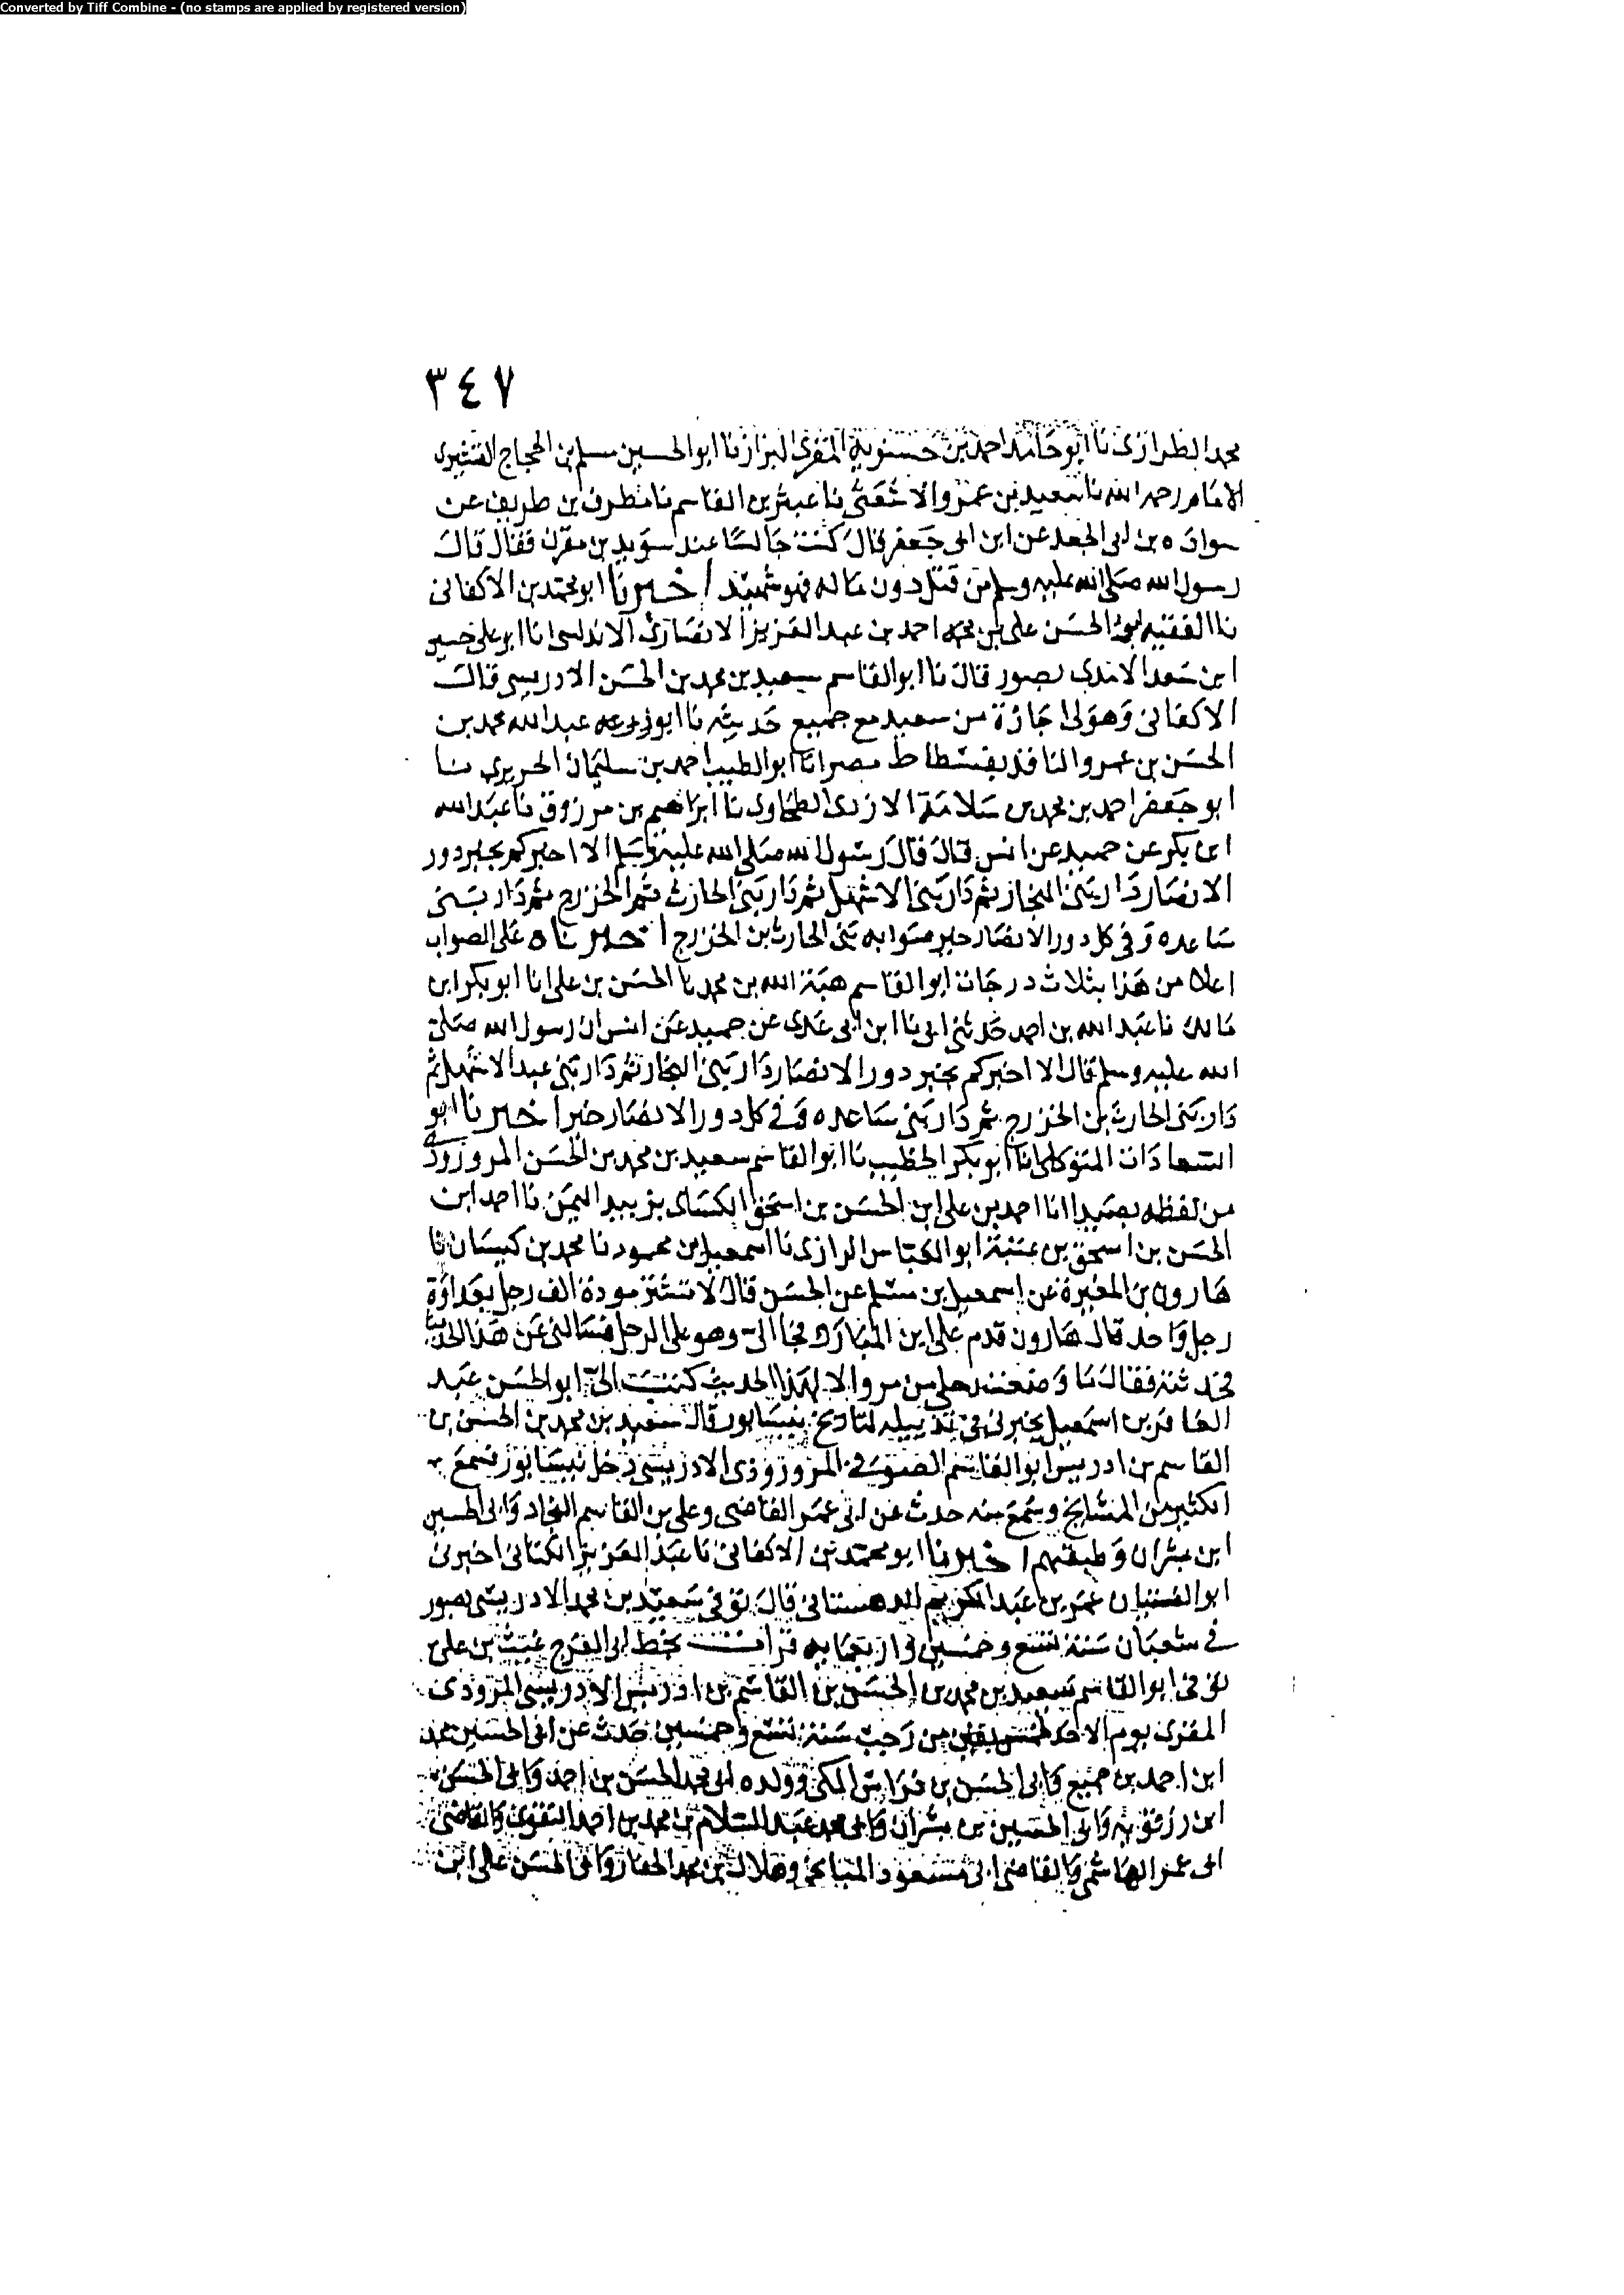 Converted by Tiff Combine - (no stamps are applied by registered version)
٣٤٧
محمد الطرازى نا ابو حامد احمد بن حسنوية المقرى البزاز نا ابو الحسين مسلم بن الحجاج القشيرى
الامام رحمه الله نا سعيد بن عمرو الاشعثى نا عبثر بن القاسم نا مطرف بن طريف عن
سواده بن ابى الجعد عن ابن ابى جعفر قال كنت جالسا عند سويد بن مقرن فقال قال
رسول الله صلى الله عليه وسلم من قتل دون ماله فهو شهيد اخبرنا ابو محمد بن الاكفانى
نا الفقيه ابو الحسن على بن احمد بن عبد العزيز الانصارى الاندلسى انا ابو على حسين
ابن سعد الامدى بصور قال نا ابو القاسم سعيد بن محمد بن الحسن الادريسى قال
الاكفانى وهو لى اجازة من سعيد مع جميع حديثه نا ابو زرعه عبد الله محمد بن
الحسن بن عمرو الناقد بفسطاط مصر انا ابو الطيب احمد بن سليمان الحريرى نا
ابو جعفر احمد بن محمد بن سلامة الازدى الطحاوى نا ابراهيم بن مرزوق نا عبد الله
ابن بكر عن حميد عن انس قال قال رسول الله صلى الله عليه وسلم الا اخبركم بخير دور
الانصار دار بنى النجار ثم دار بنى الاشهل ثم دار بنى الحارث ثم الخزرج ثم دار بنى
ساعده وفى كل دور الانصار خير صوابه بنى الحارث بن الخزرج اخبرناه على الصواب
اعلا من هذا بثلاث درجات ابو القاسم هبة الله بن محمد نا الحسن بن على انا ابو بكر ابن
مالك نا عبد الله بن احمد حدثنى ابى نا ابن ابى عدى عن حميد عن انس ان رسول الله صلى
الله عليه وسلم قال الا اخبركم بخير دور الانصار دار بنى النجار ثم دار بنى عبد الاشهل ثم
دار بنى الحارث بن الخزرج ثم دار بنى ساعده وفى كل دور الانصار خير اخبرنا ابو
السعادات المتوكلى انا ابو بكر الخطيب نا ابو القاسم سعيد بن محمد بن الحسن المروزوذى
من لفظه بصيدا انا احمد بن على ابن الحسن بن اسحق الكسائى بزبيد اليمن نا احمد ابن
الحسن بن اسحق بن عتبة ابو العباس الرازى نا اسمعيل بن محمود نا محمد بن كيسان نا
هارون بن المغيرة عن اسمعيل بن مسلم عن الحسن قال لا تشتر مودة الف رجل بعداوة
رجل واحد قال هارون قدم على ابن المبارك فجا الى وهو على الرحل فسالنى عن هذا الحديث
فحدثته فقال ما وضعت رحلى من مرو الا لهذا الحديث كتب الى ابو الحسن عبد
الغافر بن اسمعيل يخبرنى فى تذييله لتاريخ نيسابور قال سعيد بن محمد بن الحسن بن
القاسم بن ادريس ابو القاسم الصوفى المروزوذى الادريسى دخل نيسابور فسمع
الكثير من المشايخ وسمع منه حدث عن ابى عمر القاضى وعلى بن القاسم النجاد وابى الحسين
ابن بشران وطبقتهم اخبرنا ابو محمد بن الاكفانى نا عبد العزيز الكتانى اخبرنى
ابو الفتيان عمر بن عبد الكريم الدهستانى قال توفى سعيد بن محمد الادريسى بصور
فى شعبان سنة تسع وخمسين واربعمايه قرات بخط ابى الفرج غيث بن على
توفى ابو القاسم سعيد بن محمد بن الحسن بن القاسم بن ادريس الادريسى المروذى
المقرى يوم الاحد لخمس بقين من رجب سنة تسع وخمسين حدث عن ابى الحسين محمد
ابن احمد بن جميع وابى الحسن بن فراس المكى وولده ابى محمد الحسن بن احمد وابى الحسن
ابن رزقويه وابى الحسين بن بشران وابى محمد عبد السلام بن محمد بن احمد اللغوى والقاضى
ابى عمر الهاشمى والقاضى ابى مسعود وهلال بن محمد الحفار وابى الحسن على ابن